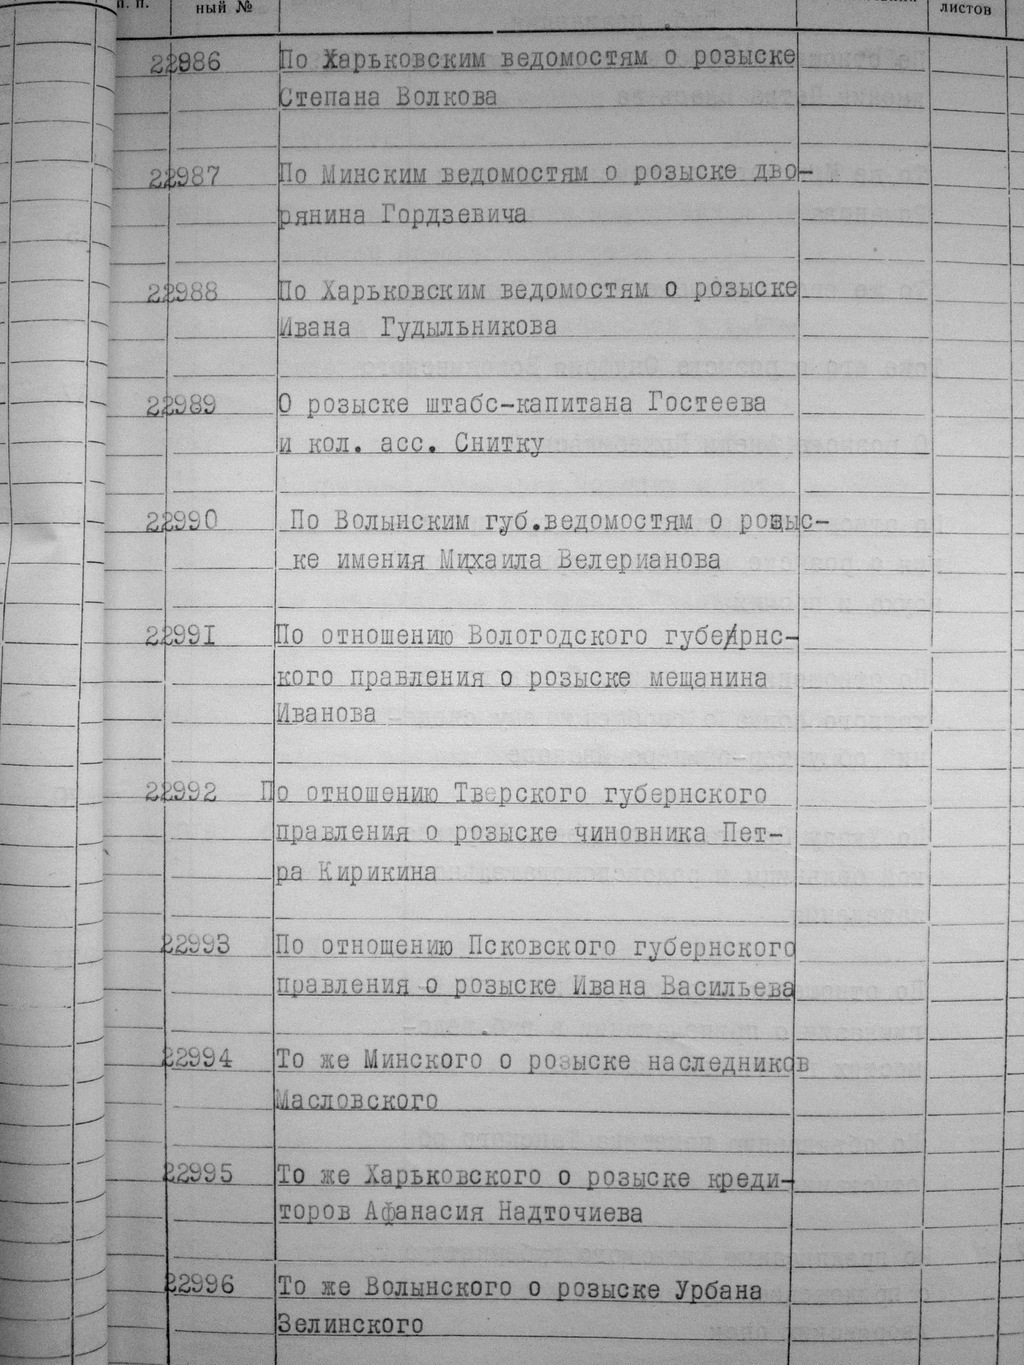 п. п.
ный №
листов
22986 По Харьковским ведомостям о розыске
Степана Волкова
22987 По Минским ведомостям о розыске дво-
рянина Гордзевича
22988 По Харьковским ведомостям о розыске
Ивана Гудыльникова
22989 О розыске штабс-капитана Гостеева
и кол. асс. Снитку
22990 По Волынским губ.ведомостям о розыс-
ке имения Михаила Велерианова
22991 По отношению Вологодского губернс-
кого правления о розыске мещанина
Иванова
22992 По отношению Тверского губернского
правления о розыске чиновника Пет-
ра Кирикина
22993 По отношению Псковского губернского
правления о розыске Ивана Васильева
22994 То же Минского о розыске наследников
Масловского
22995 То же Харьковского о розыске креди-
торов Афанасия Надточиева
22996 То же Волынского о розыске Урбана
Зелинского